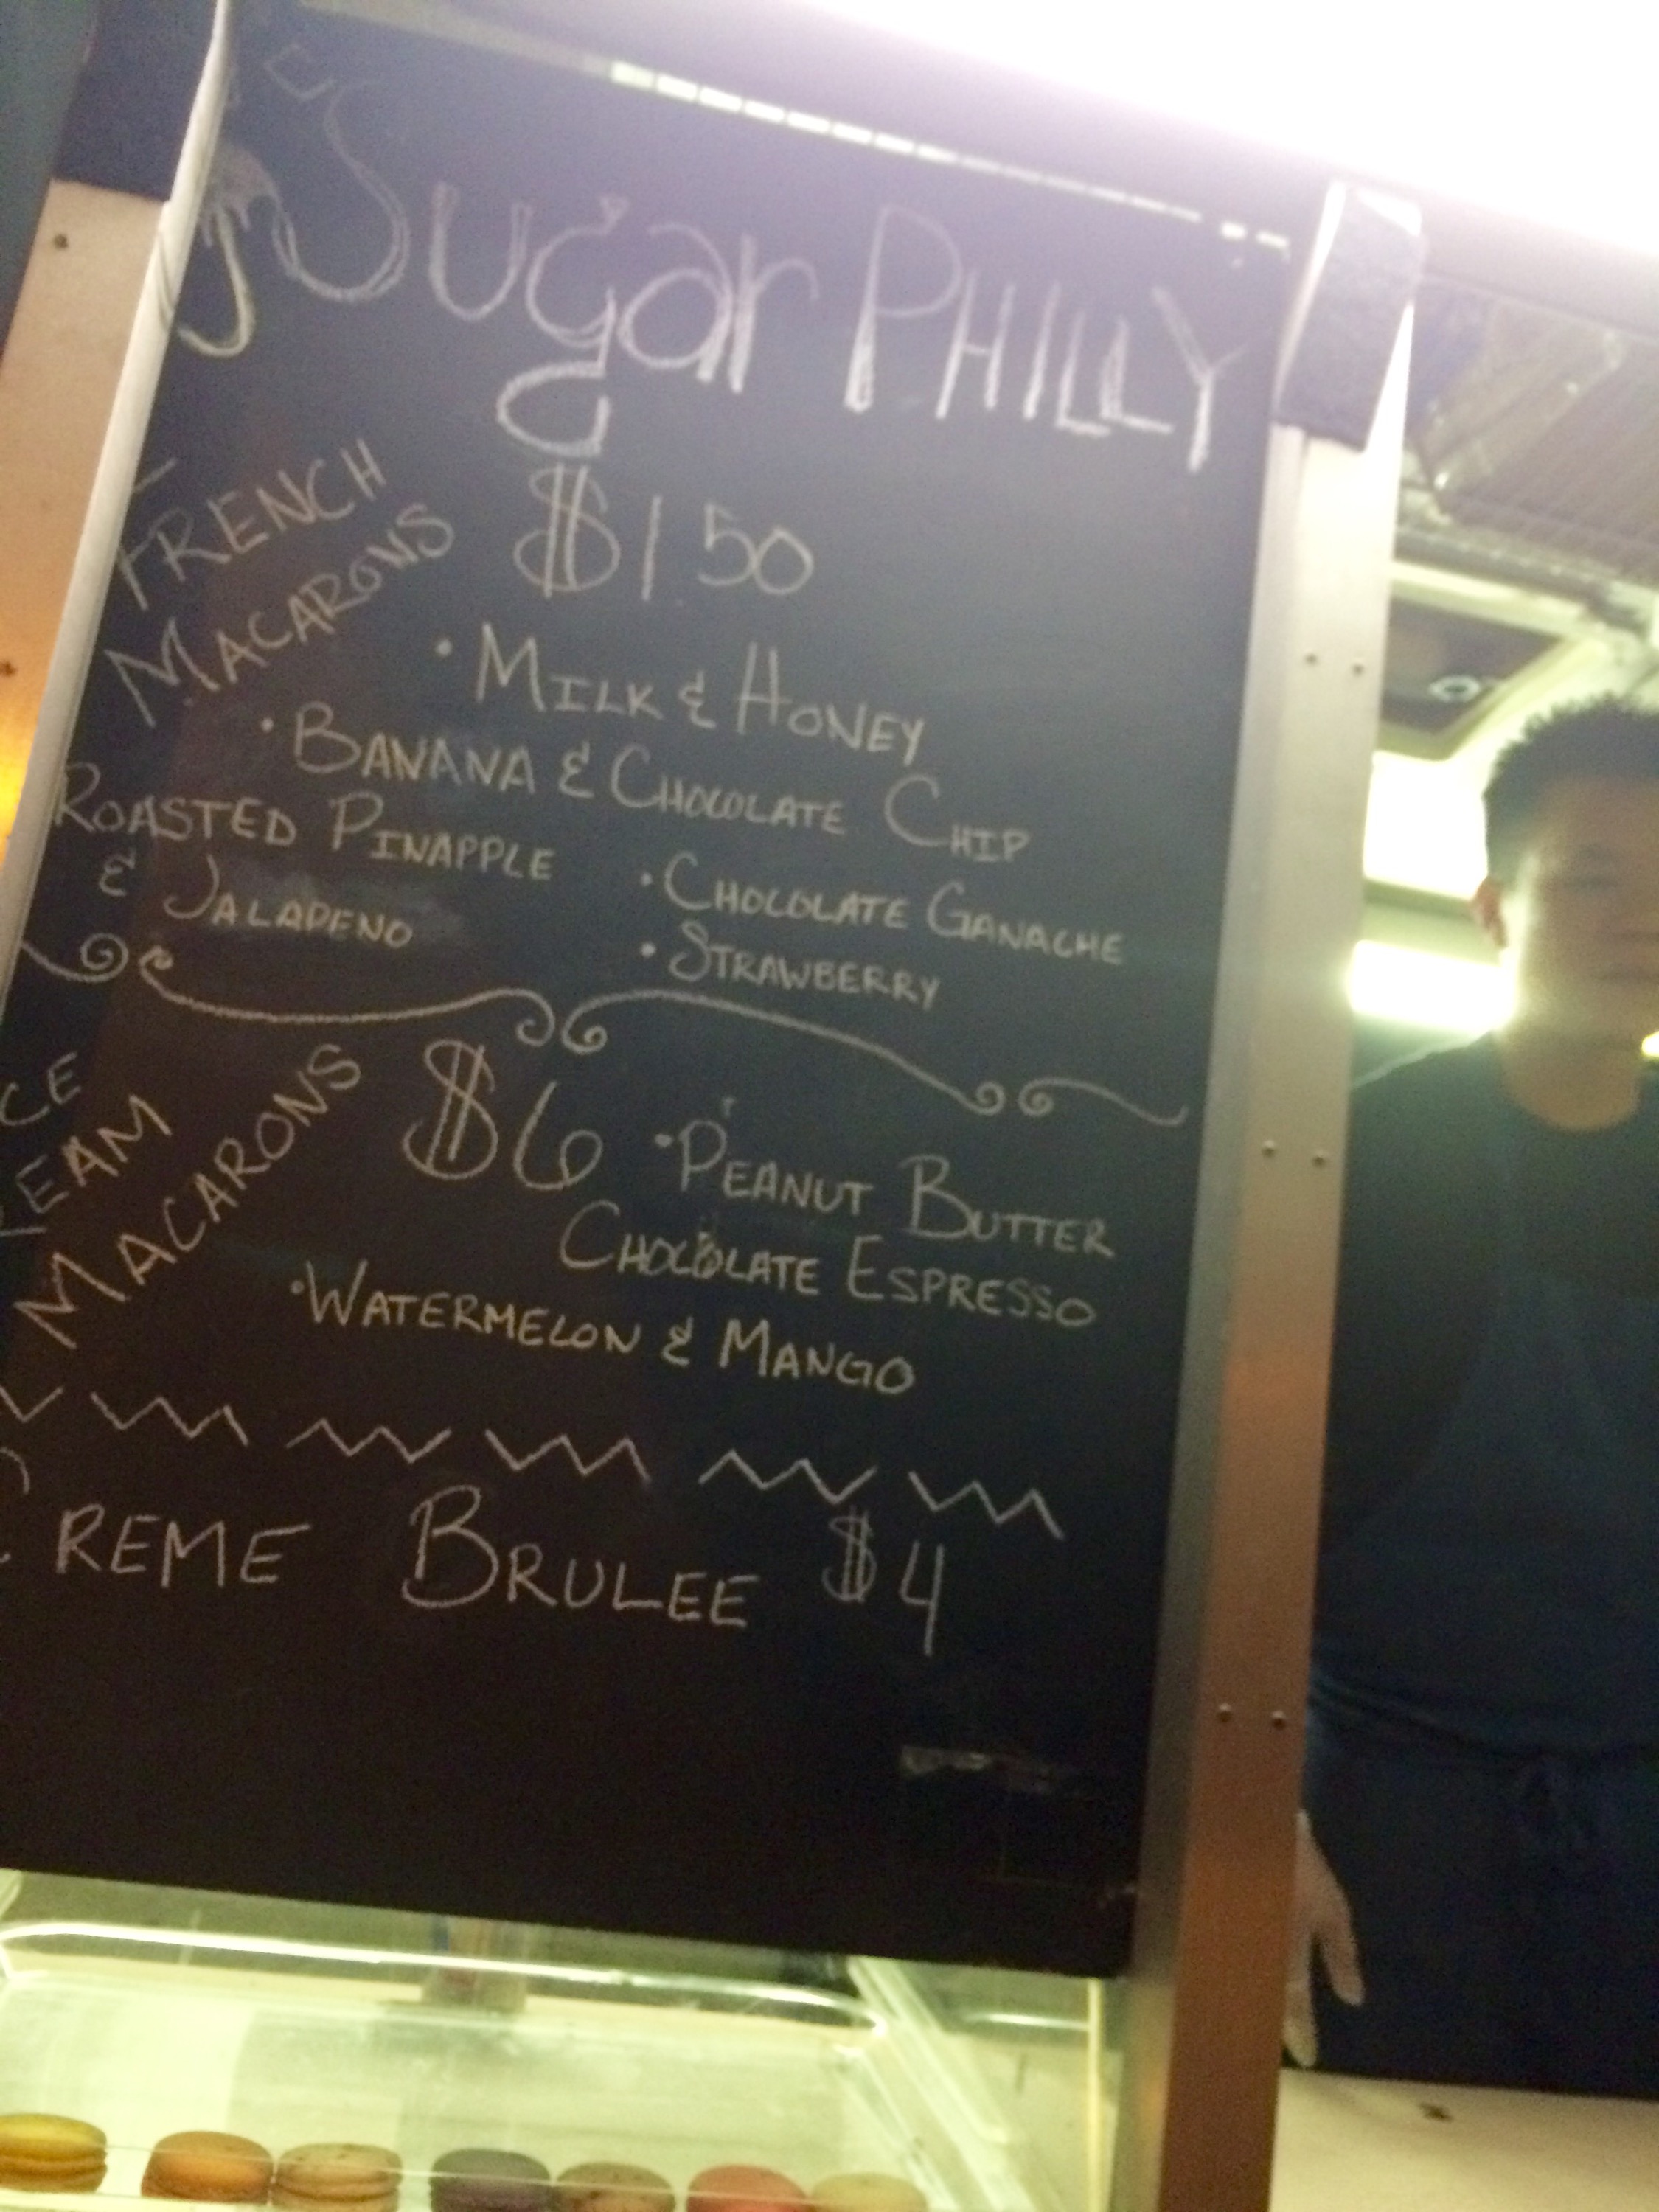 Sugar PHILLY
FRENCH
MACARONS
$1 50
· MILK & HONEY
· BANANA & CHOCOLATE CHIP
ROASTED PINAPPLE
& JALAPENO
· CHOCOLATE GANACHE
· STRAWBERRY
CE
EAM
MACARONS
$6
· PEANUT BUTTER
CHOCOLATE ESPRESSO
· WATERMELON & MANGO
CREME BRULEE $4